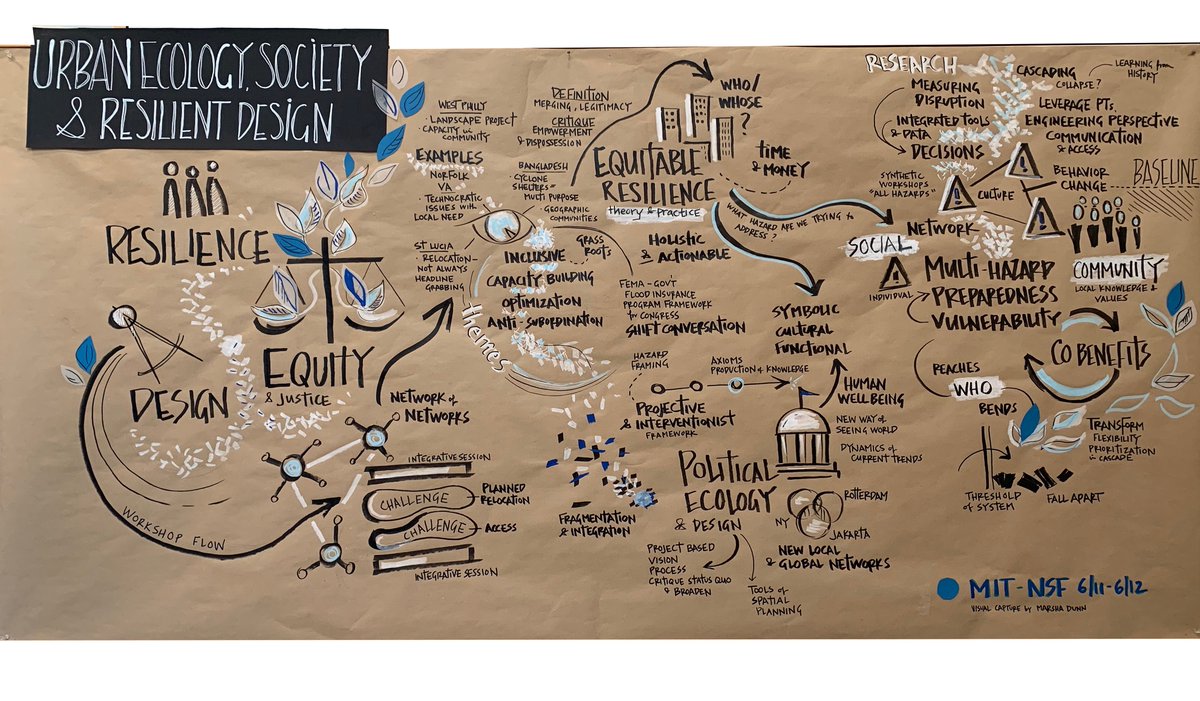 URBAN ECOLOGY, SOCIETY
& RESILIENT DESIGN
RESILIENCE
DESIGN
EQUITY
& JUSTICE
WORKSHOP FLOW
NETWORK of
NETWORKS
INTEGRATIVE SESSION
CHALLENGE
PLANNED
RELOCATION
CHALLENGE
ACCESS
INTEGRATIVE SESSION
WEST PHILLY
· LANDSCAPE PROJECT
· CAPACITY in
COMMUNITY
EXAMPLES
NORFOLK
VA
· TECHNOCRATIC
ISSUES with
LOCAL NEED
ST LUCIA
· RELOCATION-
NOT ALWAYS
HEADLINE
GRABBING
DEFINITION
MERGING, LEGITIMACY
CRITIQUE
EMPOWERMENT
& DISPOSSESSION
BANGLADESH
"CYCLONE
SHELTERS"
MULTI PURPOSE
· GEOGRAPHIC
COMMUNITIES
themes
INCLUSIVE
GRASS
ROOTS
CAPACITY BUILDING
OPTIMIZATION
ANTI-SUBORDINATION
WHO/
WHOSE
?
EQUITABLE
RESILIENCE
theory & practice
TIME
& MONEY
HOLISTIC
& ACTIONABLE
WHAT HAZARD ARE WE TRYING to
ADDRESS?
FEMA - GOV'T
FLOOD INSURANCE
PROGRAM FRAMEWORK
for CONGRESS
SHIFT CONVERSATION
SYMBOLIC
CULTURAL
FUNCTIONAL
HAZARD
FRAMING
AXIOMS
PRODUCTION of KNOWLEDGE
PROJECTIVE
& INTERVENTIONIST
FRAMEWORK
HUMAN
WELLBEING
NEW WAY OF
SEEING WORLD
DYNAMICS of
CURRENT TRENDS
FRAGMENTATION
& INTEGRATION
POLITICAL
ECOLOGY
& DESIGN
PROJECT BASED
VISION
PROCESS
CRITIQUE STATUS QUO
& BROADEN
TOOLS of
SPATIAL
PLANNING
ROTTERDAM
NY
JAKARTA
NEW LOCAL
& GLOBAL NETWORKS
RESEARCH
MEASURING
DISRUPTION
INTEGRATED TOOLS
& DATA
DECISIONS
CASCADING
COLLAPSE?
LEARNING from
HISTORY
LEVERAGE PTS.
ENGINEERING PERSPECTIVE
COMMUNICATION
& ACCESS
SYNTHETIC
WORKSHOPS
"ALL HAZARDS"
CULTURE
BEHAVIOR
CHANGE
BASELINE
NETWORK
SOCIAL
INDIVIDUAL
MULTI-HAZARD
PREPAREDNESS
VULNERABILITY
COMMUNITY
LOCAL KNOWLEDGE &
VALUES
CO BENEFITS
REACHES
WHO
BENDS
TRANSFORM
FLEXIBILITY
PRIORITIZATION
in CASCADE
THRESHOLD
of SYSTEM
FALL APART
MIT-NSF 6/11-6/12
VISUAL CAPTURE by MARSHA DUNN